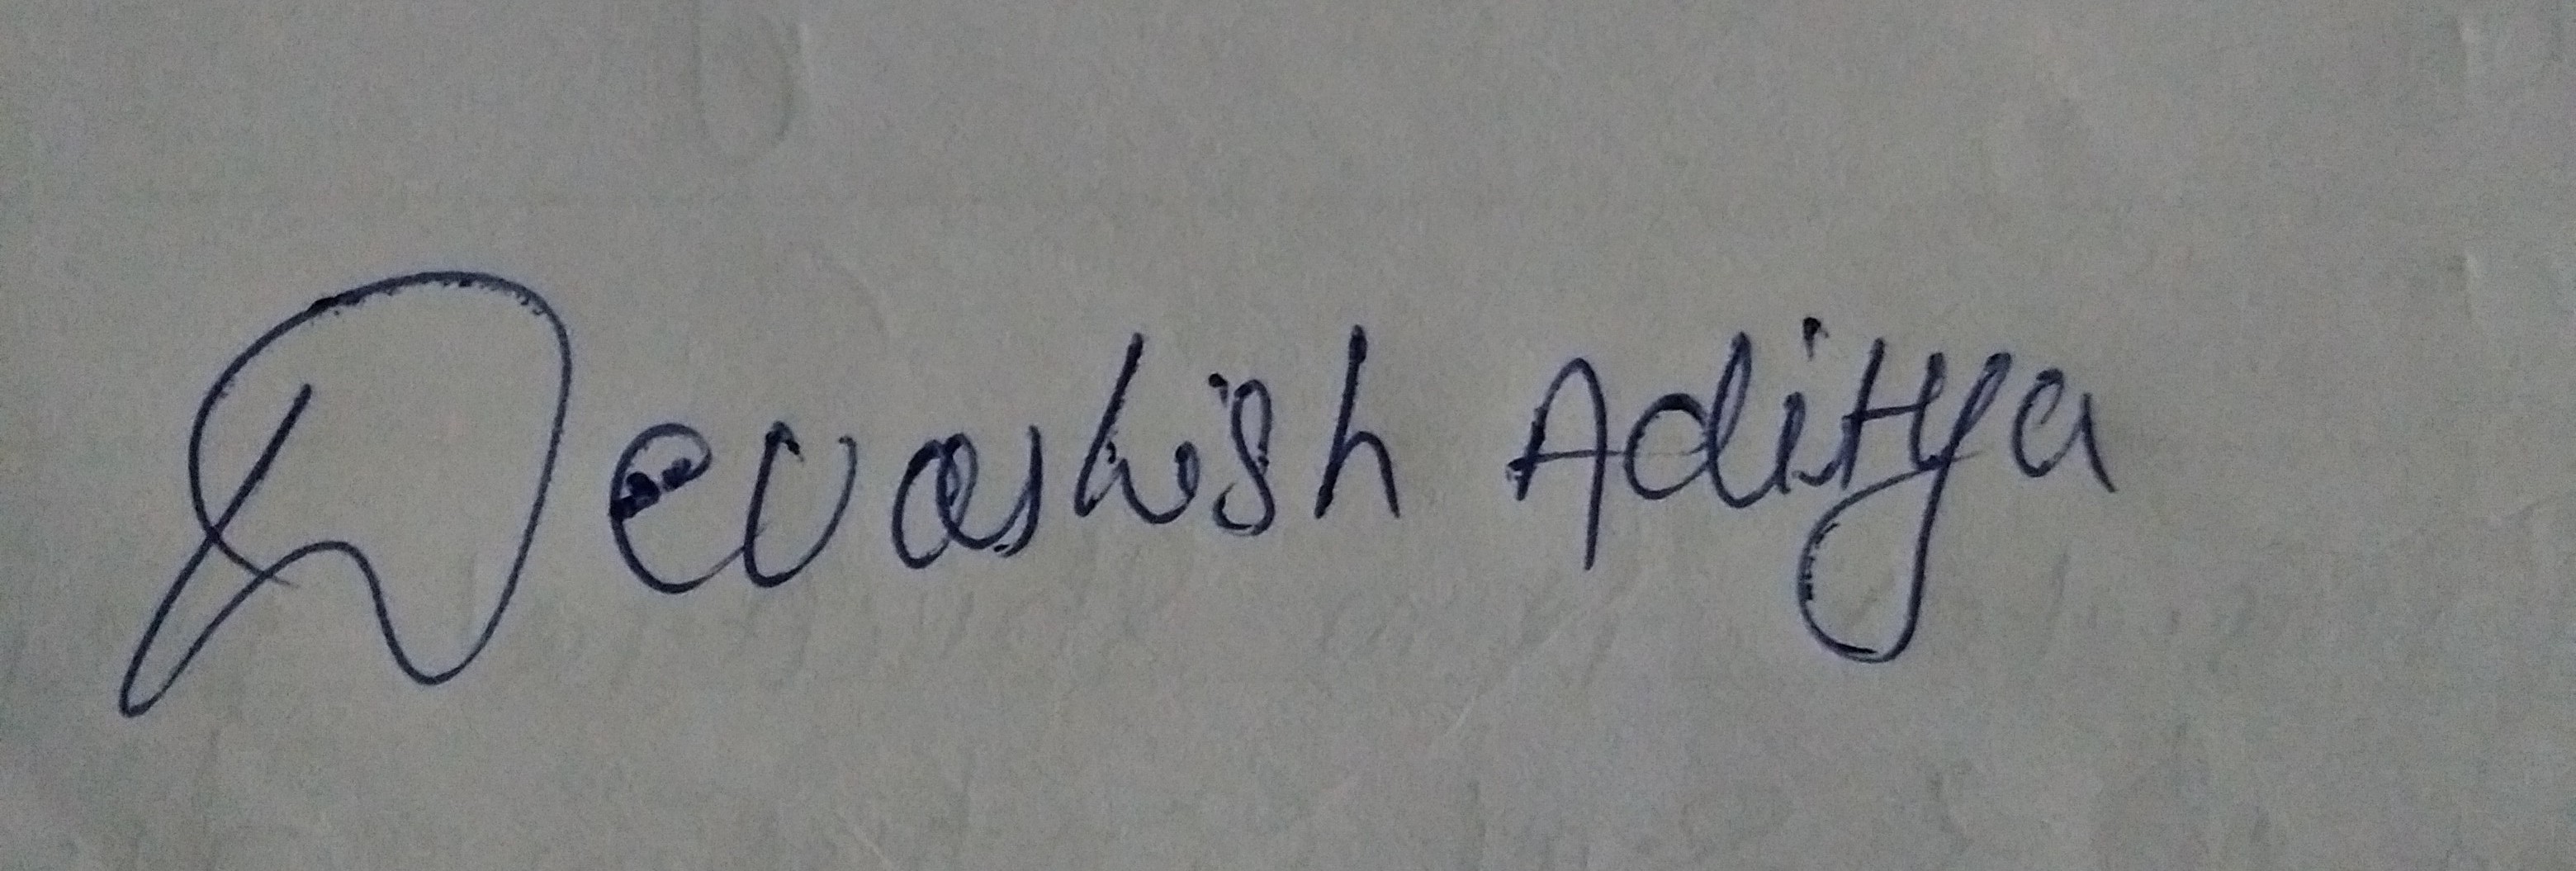 Devashish Aditya